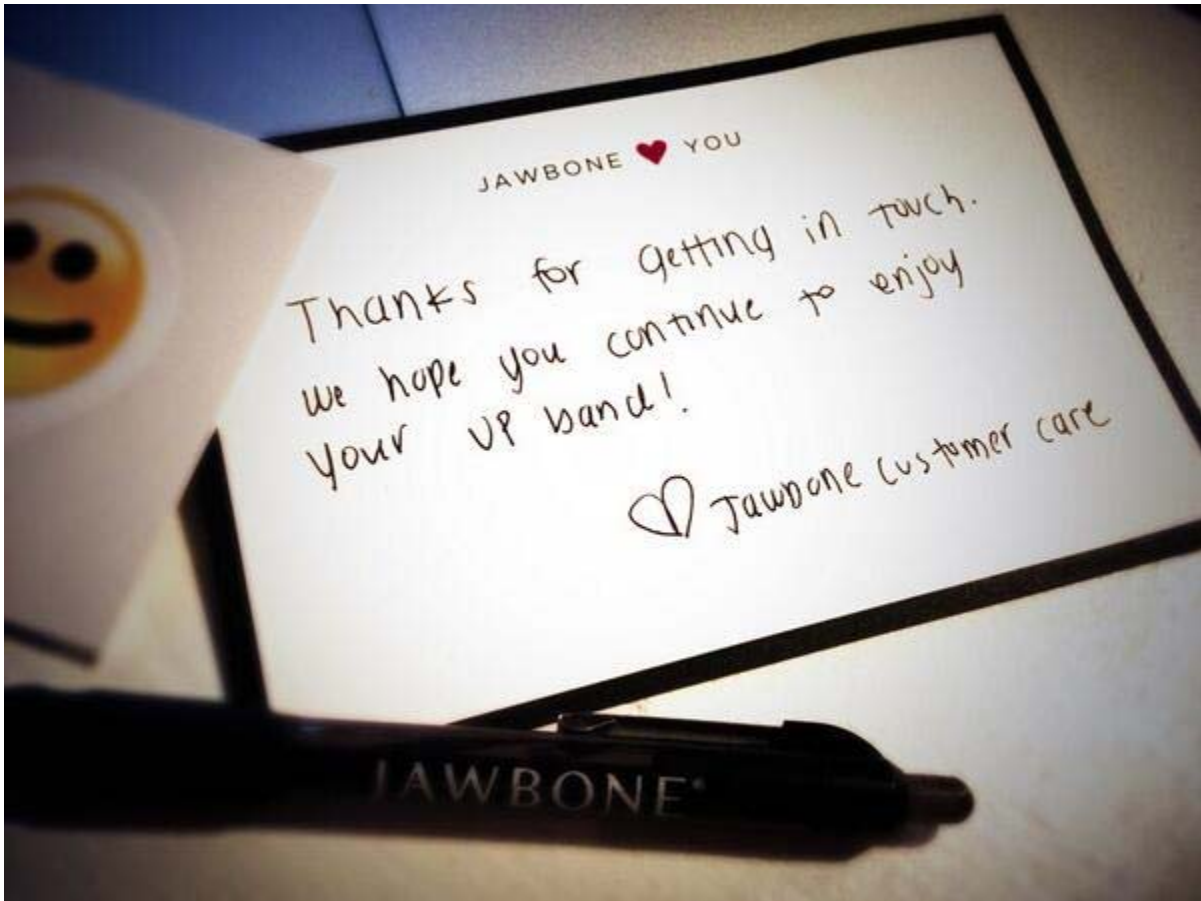 JAWBONE ♥ YOU
Thanks for getting in touch.
We hope you continue to enjoy
your UP band!
♡ Jawbone customer care
JAWBONE®